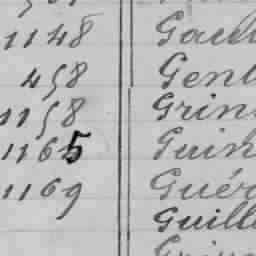 1148
458 Gent
1158 Grin
1165 Guin
1169 Guér
Guill